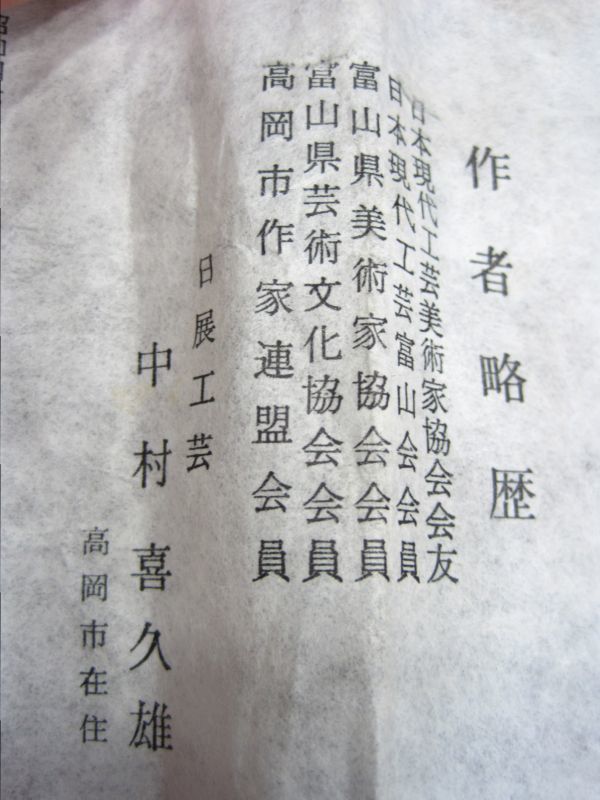 作者略歴
日本現代工芸美術家協会会友
日本現代工芸富山会会員
富山県美術家協会会員
富山県芸術文化協会会員
高岡市作家連盟会員
日展工芸
中村喜久雄
高岡市在住